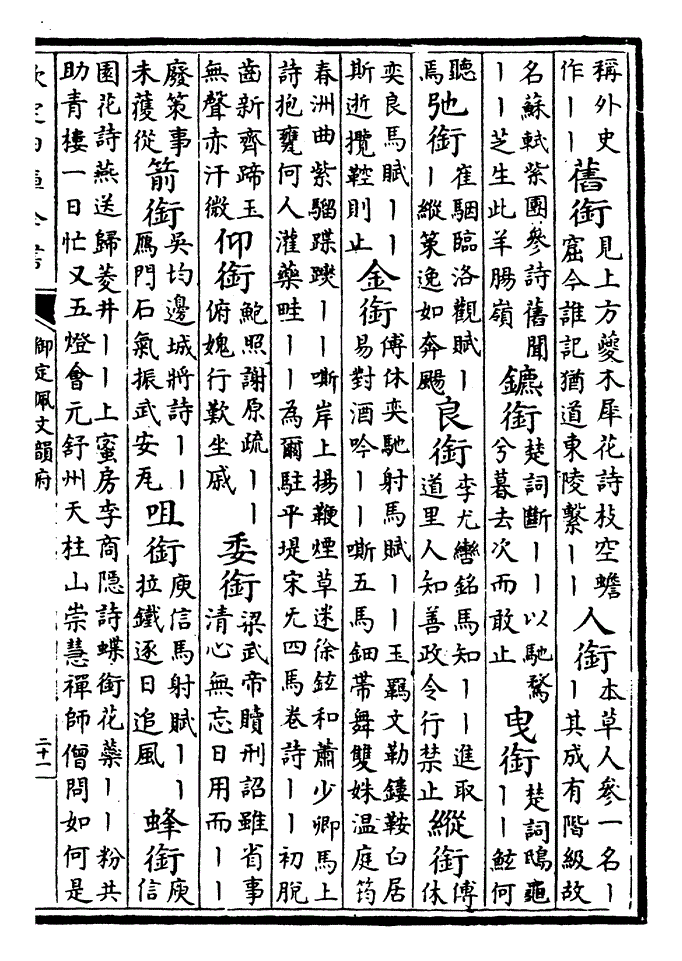 稱外史
作丨丨
舊銜
見上方夔木犀花詩枝空蟾
窟今誰記猶道東陵繫丨丨
人銜
本草人參一名丨
丨其成有階級故
名蘇軾紫團參詩舊聞
丨丨芝生此羊腸嶺
鑣銜
楚詞斷丨丨以馳騖
兮暮去次而敢止
曳銜
楚詞鴟龜
丨丨鮌何
聽
焉
弛銜
崔駰臨洛觀賦丨
丨縱策逸如奔颺
良銜
李尤轡銘馬知丨丨進取
道里人知善政令行禁止
縱銜
傅
休
奕良馬賦丨丨
斯逝攬鞚則止
金銜
傅休奕馳射馬賦丨丨玉羈文勒鏤鞍白居
易對酒吟丨丨嘶五馬鈿帶舞雙姝温庭筠
春洲曲紫騮蹀躞丨丨嘶岸上揚鞭煙草迷徐鉉和蕭少卿馬上
詩抱甕何人灌藥畦丨丨為爾駐平堤宋旡四馬卷詩丨丨初脫
齒新齊蹄玉
無聲赤汗微
仰銜
鮑照謝原疏丨丨
俯媿行歎坐戚
委銜
梁武帝贖刑詔雖省事
清心無忘日用而丨丨
廢策事
未蒦從
箭銜
吳均邊城將詩丨丨
雁門石氣振武安瓦
咀銜
庾信馬射賦丨丨
拉鐵逐日追風
蜂銜
庾
信
園花詩燕送歸菱井丨丨上蜜房李商隱詩蝶銜花蘂丨丨粉共
助青樓一日忙又五燈會元舒州天柱山崇慧禪師僧問如何是
欽定四庫全書
御定佩文韻府
二十一